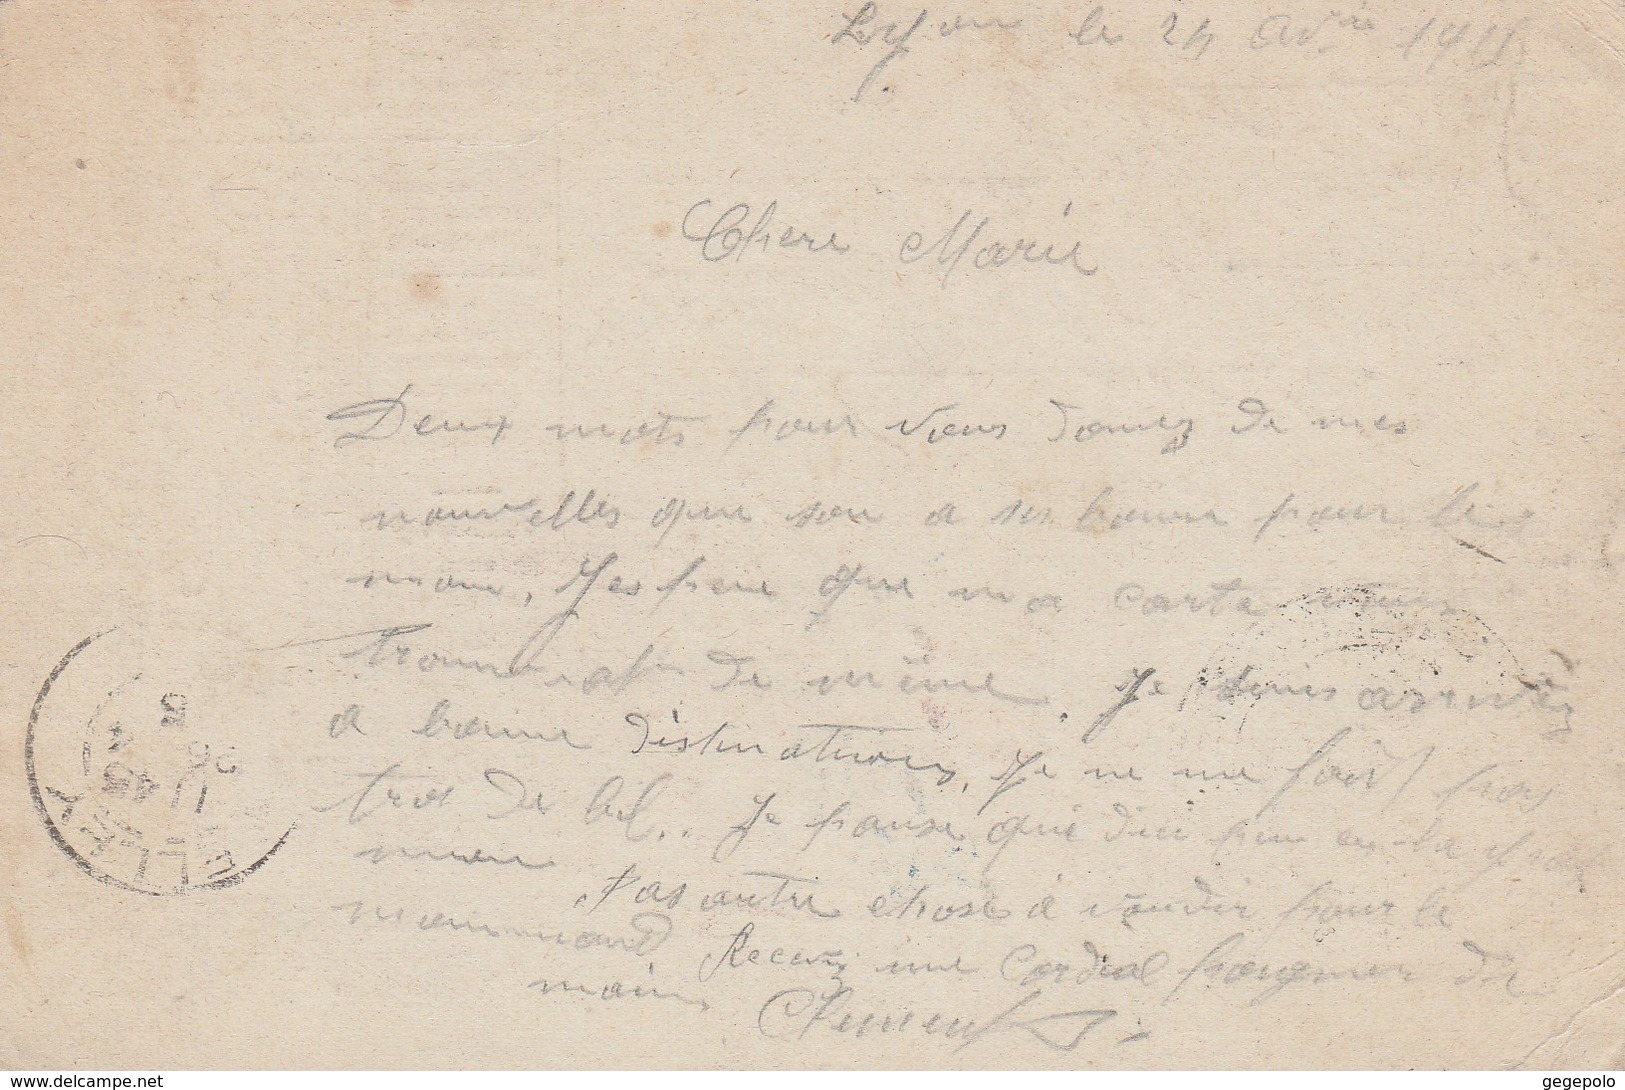 Lyon le 24 1915
Chere Marie
Deux mots pour vous donnez de mes
nouvelles que son a ses bonne pour le
mon, J'espere que ma carte vous
trouverat de même. Je suis arrivéz
a bonne distination, Je ne me fais pas
trot de bil.. Je panse que dici peu
pas autre chose à voudir pour le
mommand Recevez une Cordial pougner de
mains Clement
www.delcampe.net
gegepolo